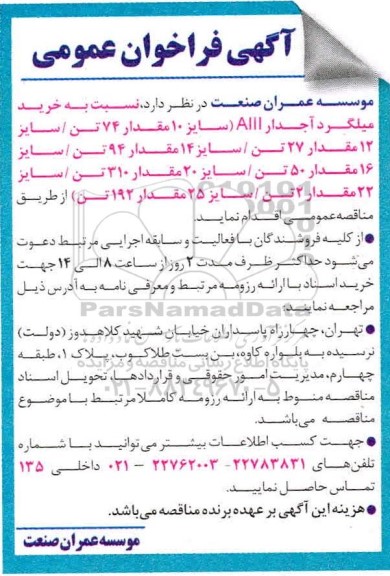 آگهی فراخوان عمومی
موسسه عمران صنعت در نظر دارد، نسبت به خرید
میلگرد آجدار AIII (سایز ۱۰ مقدار ۷۴ تن / سایز
۱۲ مقدار ۲۷ تن / سایز ۱۴ مقدار ۹۴ تن / سایز
۱۶ مقدار ۵۰ تن / سایز ۲۰ مقدار ۳۱۰ تن / سایز
۲۲ مقدار ۲ تن / سایز ۲۵ مقدار ۱۹۲ تن) از طریق
مناقصه عمومی اقدام نماید.
● از کلیه فروشندگان با فعالیت و سابقه اجرایی مرتبط دعوت
می‌شود حداکثر ظرف مدت ۲ روز از ساعت ۸ الی ۱۴ جهت
خرید اسناد با ارائه رزومه مرتبط و معرفی نامه به آدرس ذیل
مراجعه نمایید:
ParsNamadData
● تهران، چهارراه پاسداران خیابان شهید کلاهدوز (دولت)
نرسیده به بلوار کاوه، بن بست طلاکوب، پلاک ۱، طبقه
پایگاه اطلاع رسانی مناقصه و مزایده
چهارم، مدیریت امور حقوقی و قراردادها، تحویل اسناد
۰۲۱-۸۸۳۴۹۶۷۰-۵
مناقصه منوط به ارائه رزومه کاملا مرتبط با موضوع
مناقصه می‌باشد.
● جهت کسب اطلاعات بیشتر می‌توانید با شماره
تلفن‌های ۲۲۷۸۳۸۳۱- ۲۲۷۶۲۰۰۳ – ۰۲۱ داخلی ۱۳۵
تماس حاصل نمایید.
● هزینه این آگهی بر عهده برنده مناقصه می‌باشد.
موسسه عمران صنعت